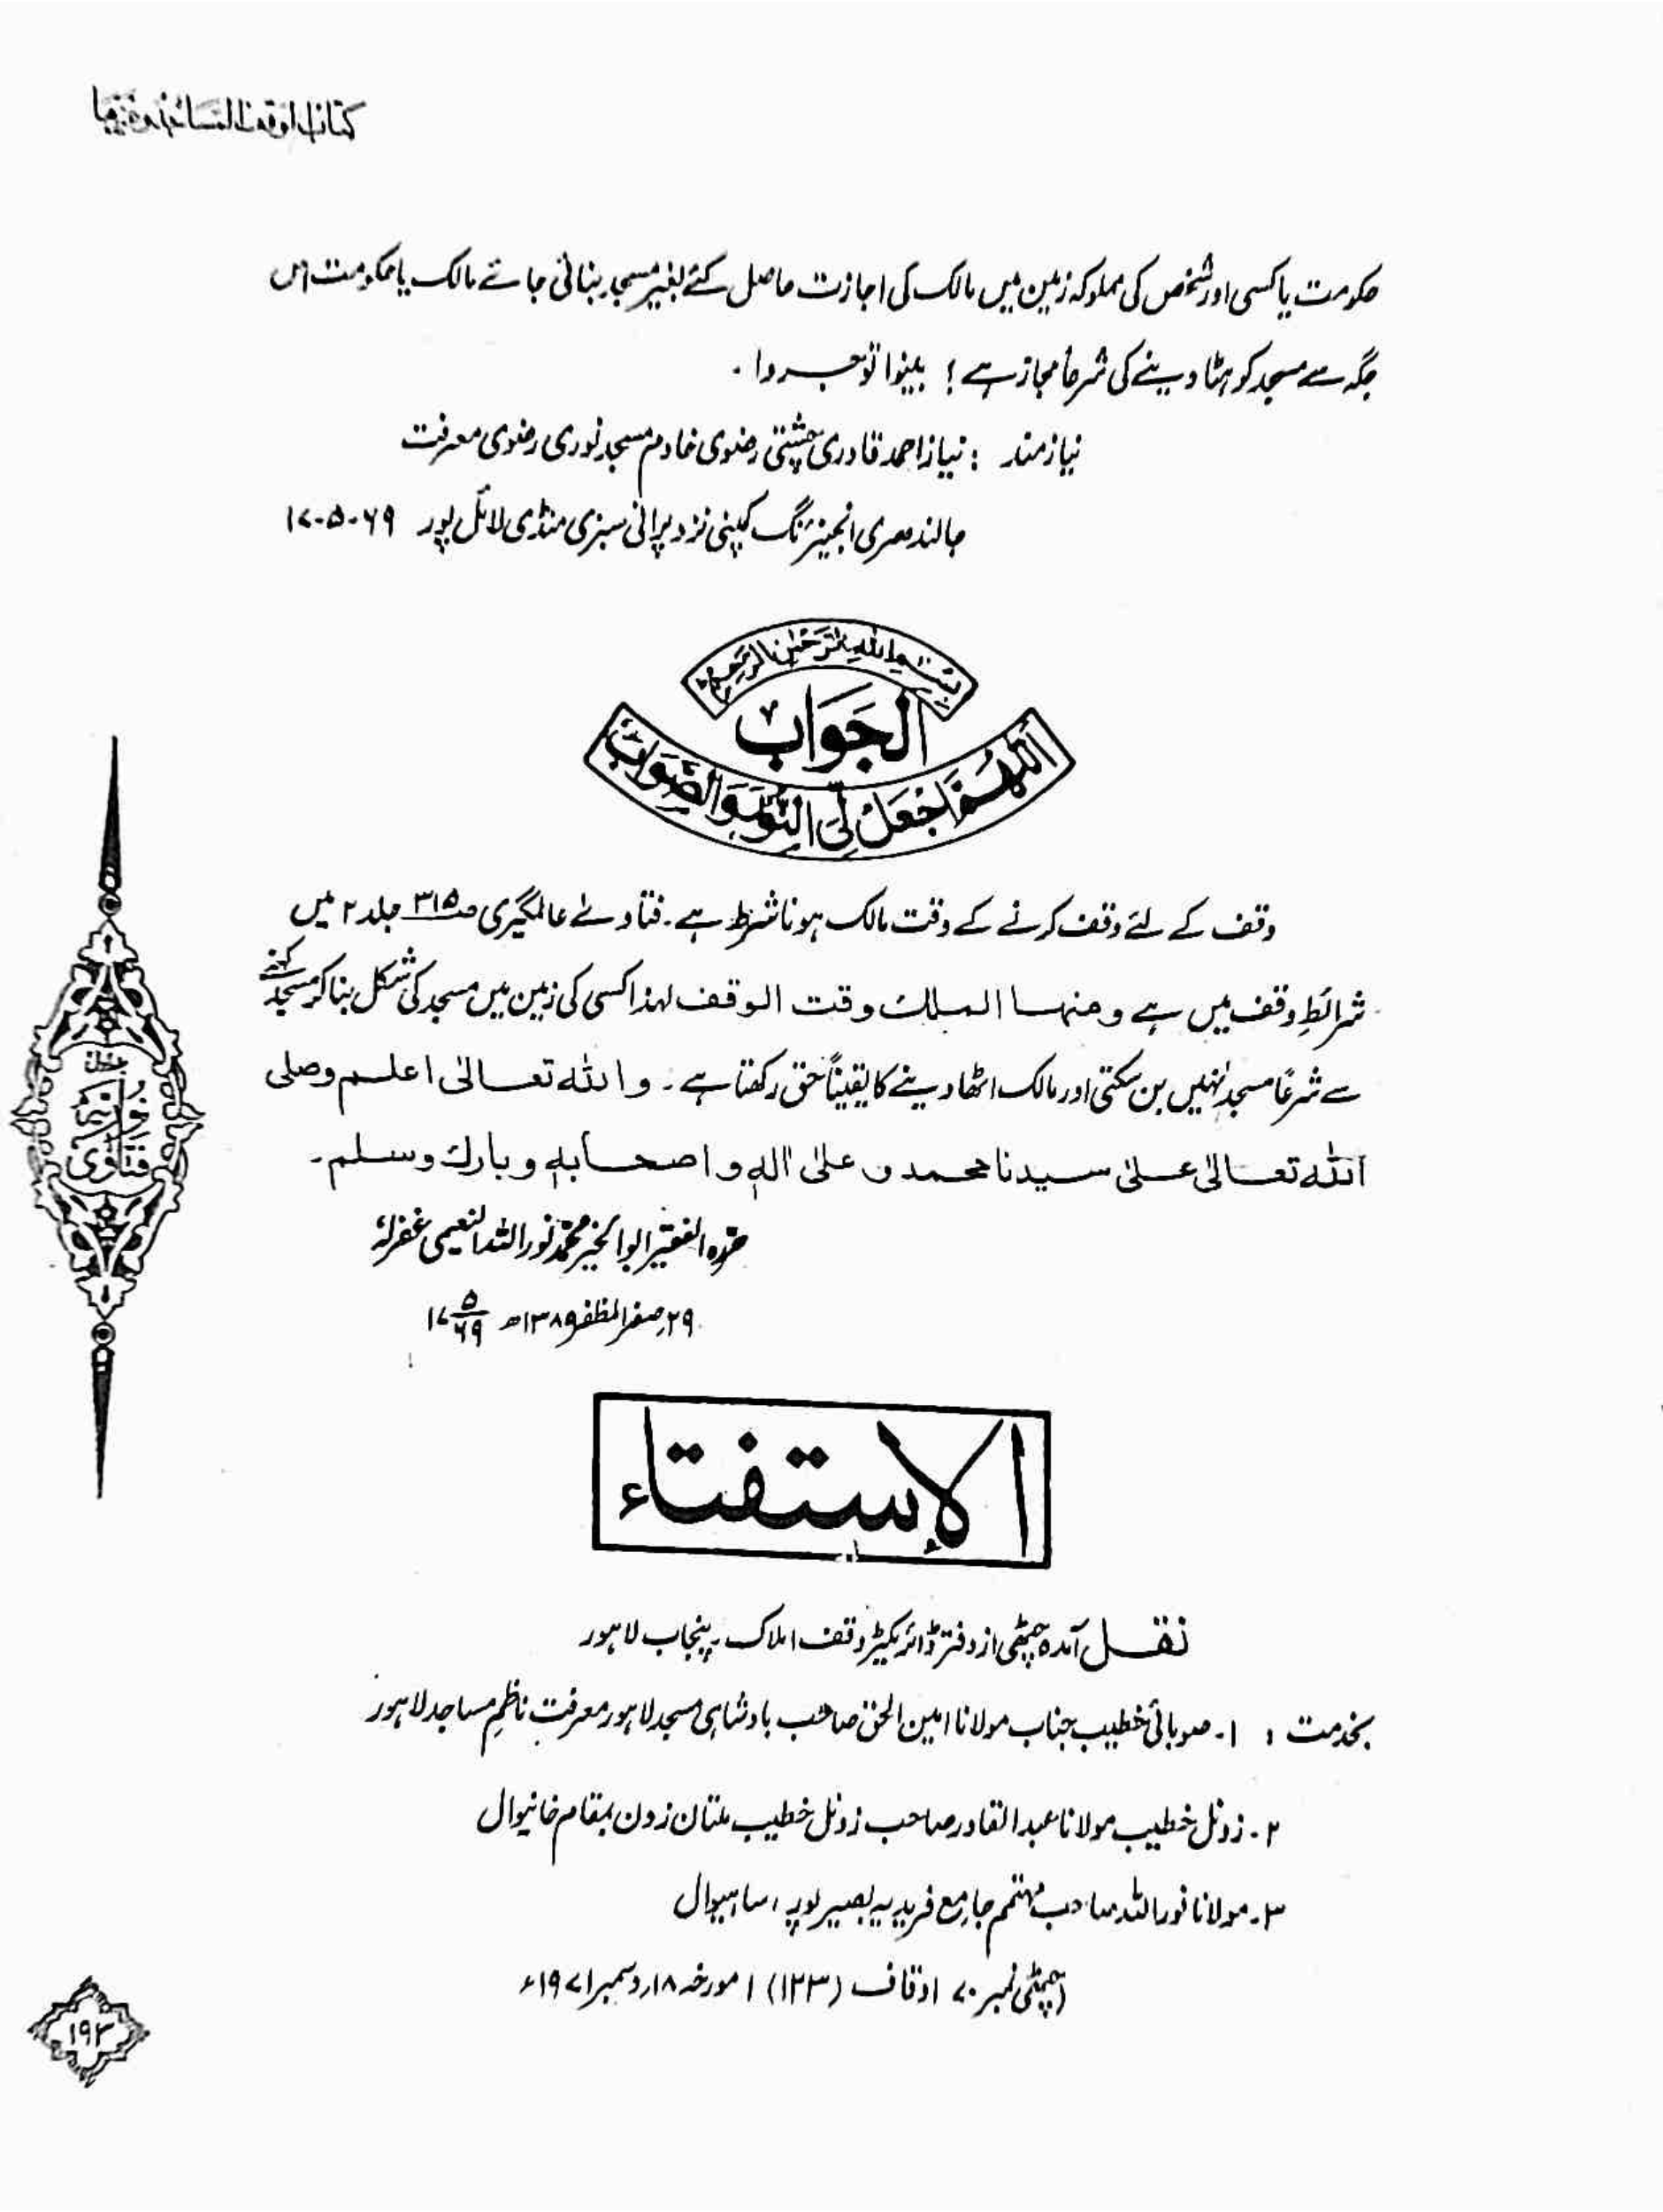 حکومت یا کسی اور شخص کی مملوکہ زمین میں مالک کی اجازت حاصل کئے بغیر مسجد بنائی جائے مالک یا حکومت اس
جگہ سے مسجد کو ہٹا دینے کی شرعاً مجاز ہے؟ بینوا توجروا .
نیازمند : نیاز احمد قادری چشتی رضوی خادم مسجد نوری رضوی معرفت
جالندھری انجینئرنگ کمپنی نزد پرانی سبزی منڈی لائل پور ۶۹-۵-۱۷
بسم الله الرحمن الرحيم
الجَوَاب
اللهم اجعل لی النور والصواب
وقف کے لئے وقف کرنے کے وقت مالک ہونا شرط ہے۔ فتاوے عالمگیری صـ۳۱۵ جلد ۲ میں
شرائطِ وقف میں ہے ومنہا الملك وقت الوقف لہذا کسی کی زمین میں مسجد کی شکل بنا کر مسجد کہنے
سے شرعًا مسجد نہیں بن سکتی اور مالک اٹھا دینے کا یقیناً حق رکھتا ہے۔ واللہ تعالیٰ اعلم وصلی
اللہ تعالیٰ علیٰ سیدنا محمد و علیٰ اٰلہٖ و اصحابہٖ و بارك وسلم۔
حررہ الفقیر ابوالخیر محمد نور اللہ النعیمی غفرلہٗ
۲۹ صفر المظفر ۱۳۸۹ھ ۱۷/۵/۶۹
فتاوٰی نوریہ جلد
الاستفتاء
نقل آمدہ چٹھی از دفتر ڈائریکٹر وقف املاک پنجاب لاہور
بخدمت : ۱۔ صوبائی خطیب جناب مولانا امین الحق صاحب بادشاہی مسجد لاہور معرفت ناظمِ مساجد لاہور
۲۔ زونل خطیب مولانا عبدالقادر صاحب زونل خطیب ملتان زون بمقام خانیوال
۳۔ مولانا نور اللہ صاحب مہتمم جامع فریدیہ بصیر پور، ساہیوال
(چٹھی نمبر ۷۰ اوقاف (۱۲۳) ا مورخہ ۱۸ دسمبر ۱۹۷۱ء
۱۹۲